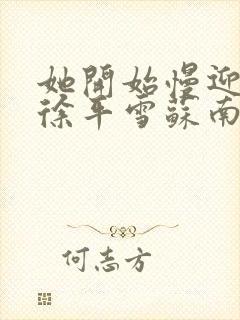 她開始慢迎
徐平雪蘇南
何志方